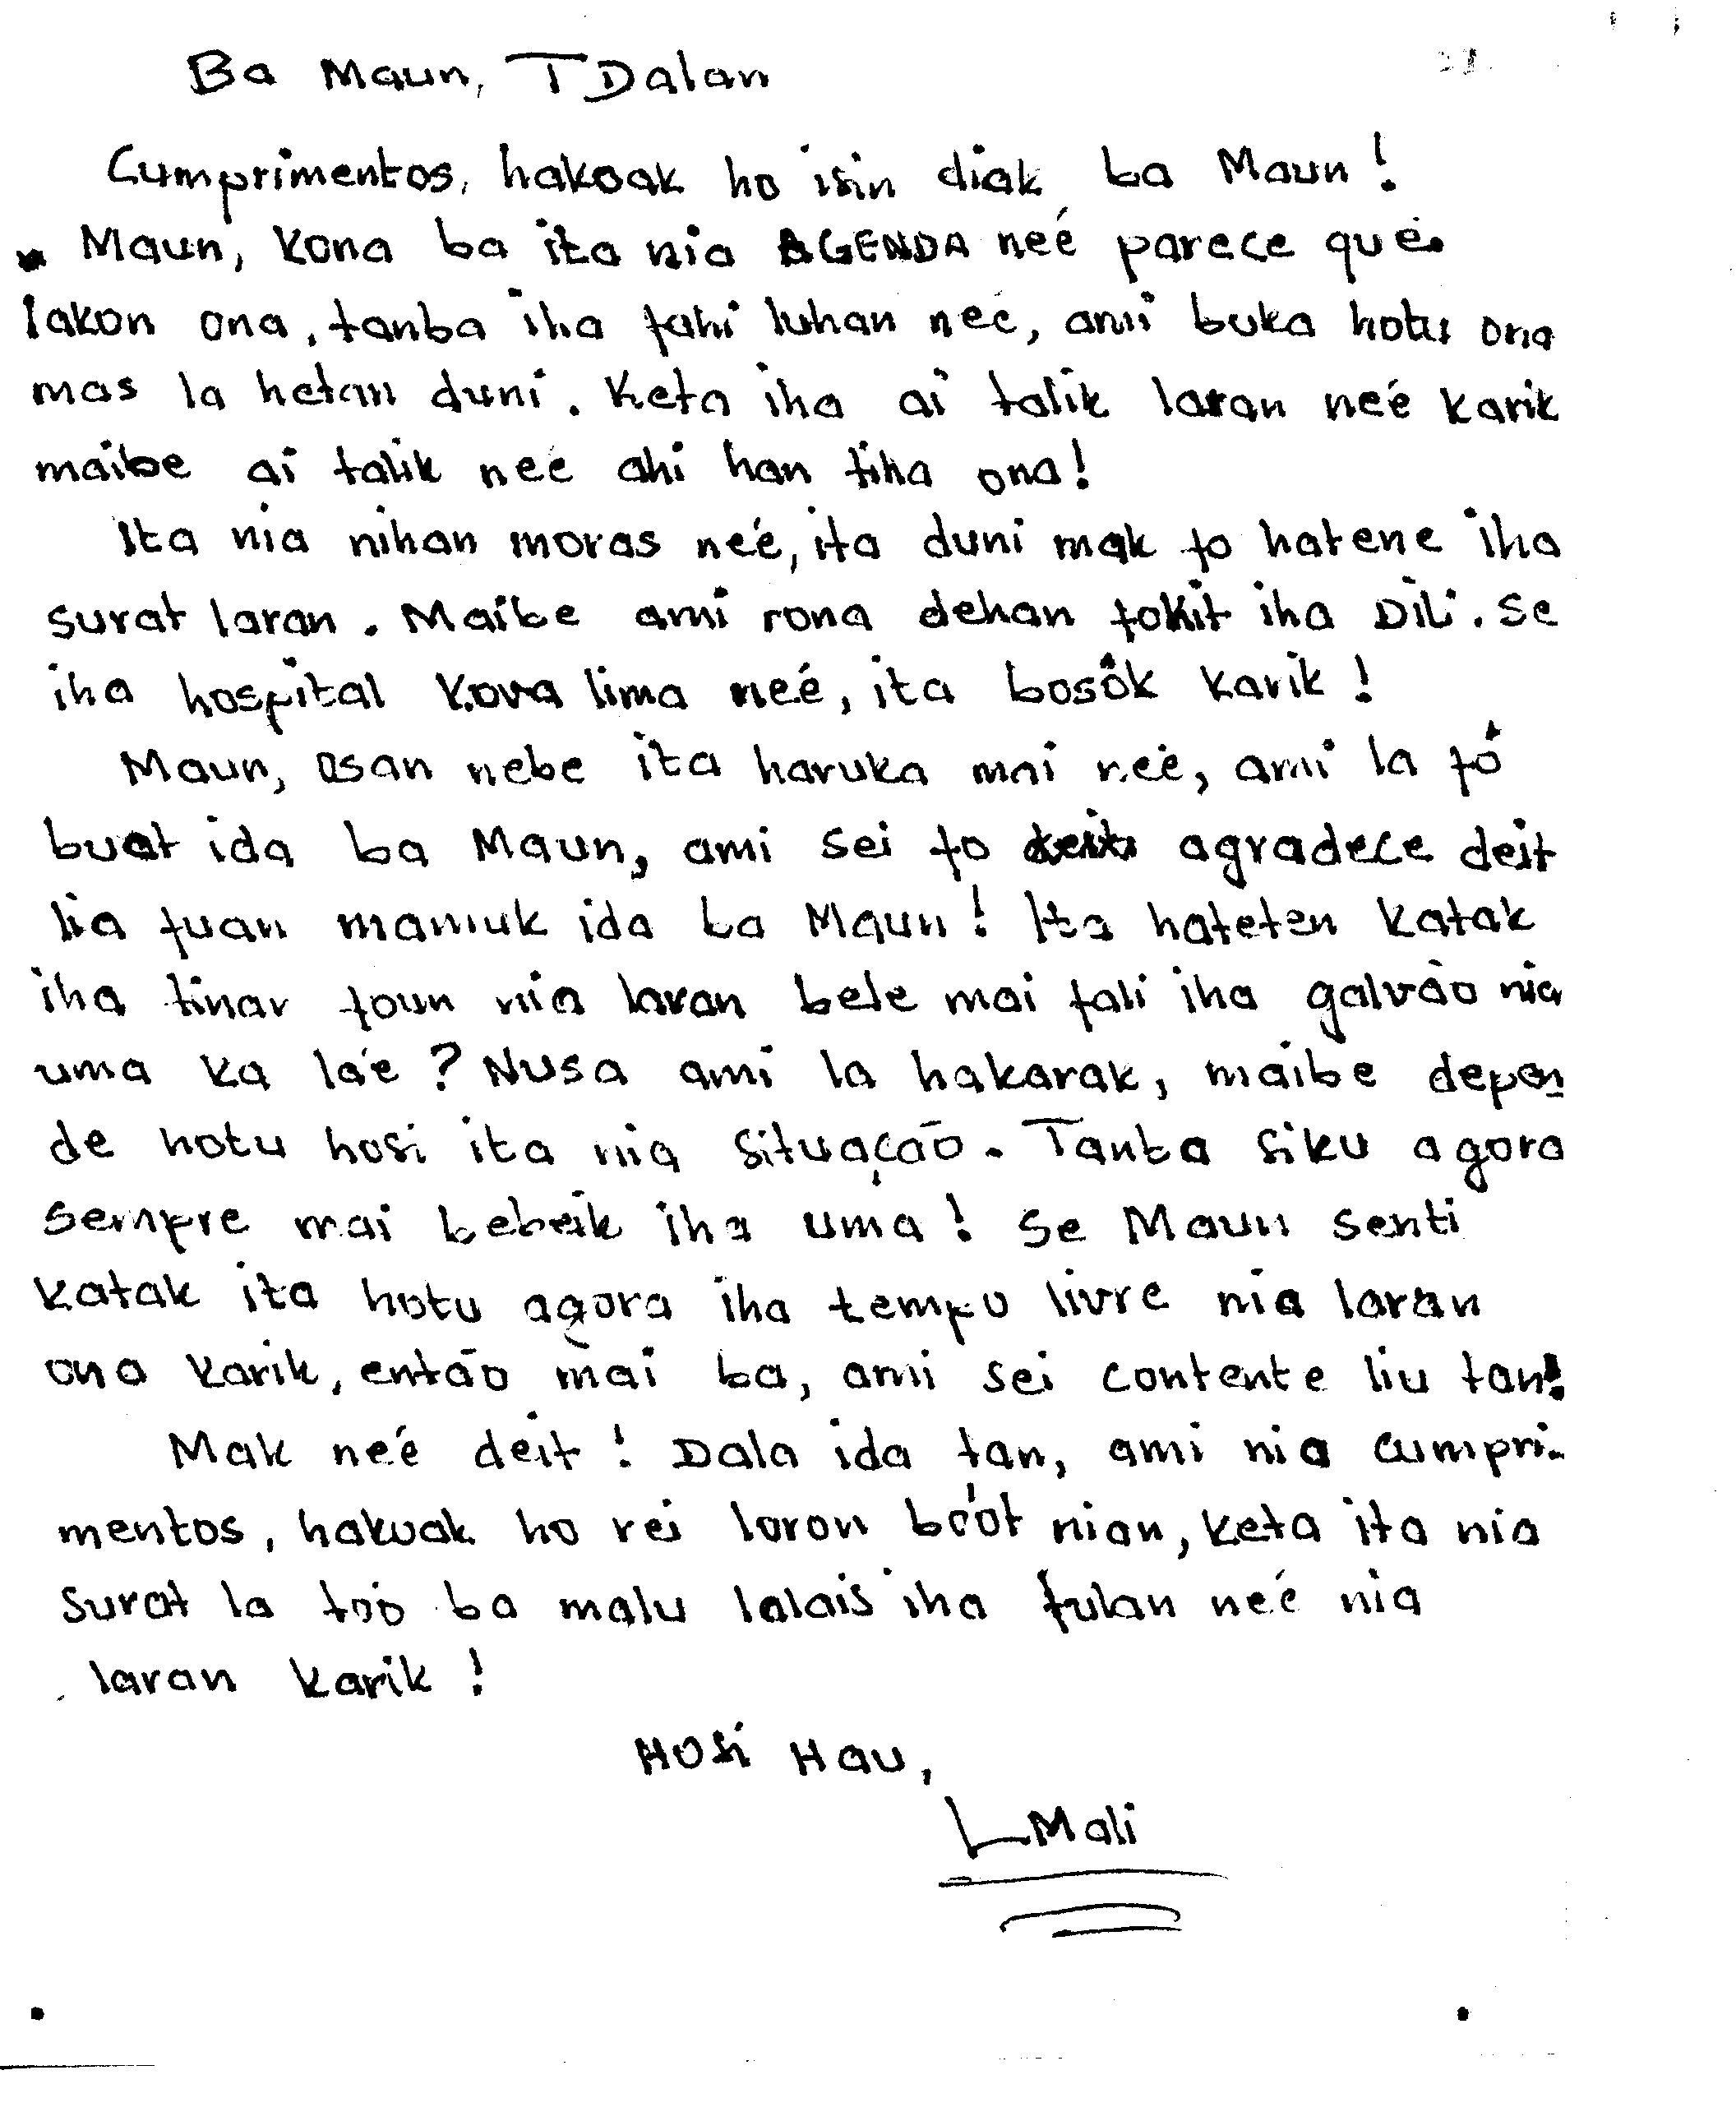 Ba Maun, TDalan
Cumprimentos, hakoak ho isin diak ba Maun!
Maun, kona ba ita nia AGENDA neé parece que
lakon ona, tanba iha fahi luhan neé, ami buka hotu ona
mas la hetan duni. Keta iha ai talik laran neé karik
maibe ai talik neé ahi han tiha ona!
Ita nia nihan moras neé, ita duni mak fo hatene iha
surat laran. Maibe ami rona dehan fokit iha Dili. Se
iha hospital Kova lima neé, ita bosok karik!
Maun, osan nebe ita haruka mai neé, ami la fó
buat ida ba Maun, ami sei fo agradece deit
lia fuan mamuk ida ba Maun! Ita hateten katak
iha tinar foun nia laran bele mai fali iha galvão nia
uma ka lá'e? Nusa ami la hakarak, maibe depen
de hotu hosi ita nia situação. Tanba siku agora
sempre mai bebeik iha uma! Se Maun senti
katak ita hotu agora iha tempo livre nia laran
ona karik, então mai ba, ami sei contente liu tan!
Mak neé deit! Dala ida tan, ami nia cumpri-
mentos, hakoak ho rei loron bo'ot nian, keta ita nia
surat la too ba malu lalais iha fulan neé nia
laran karik!
Hosi Hau,
LMali